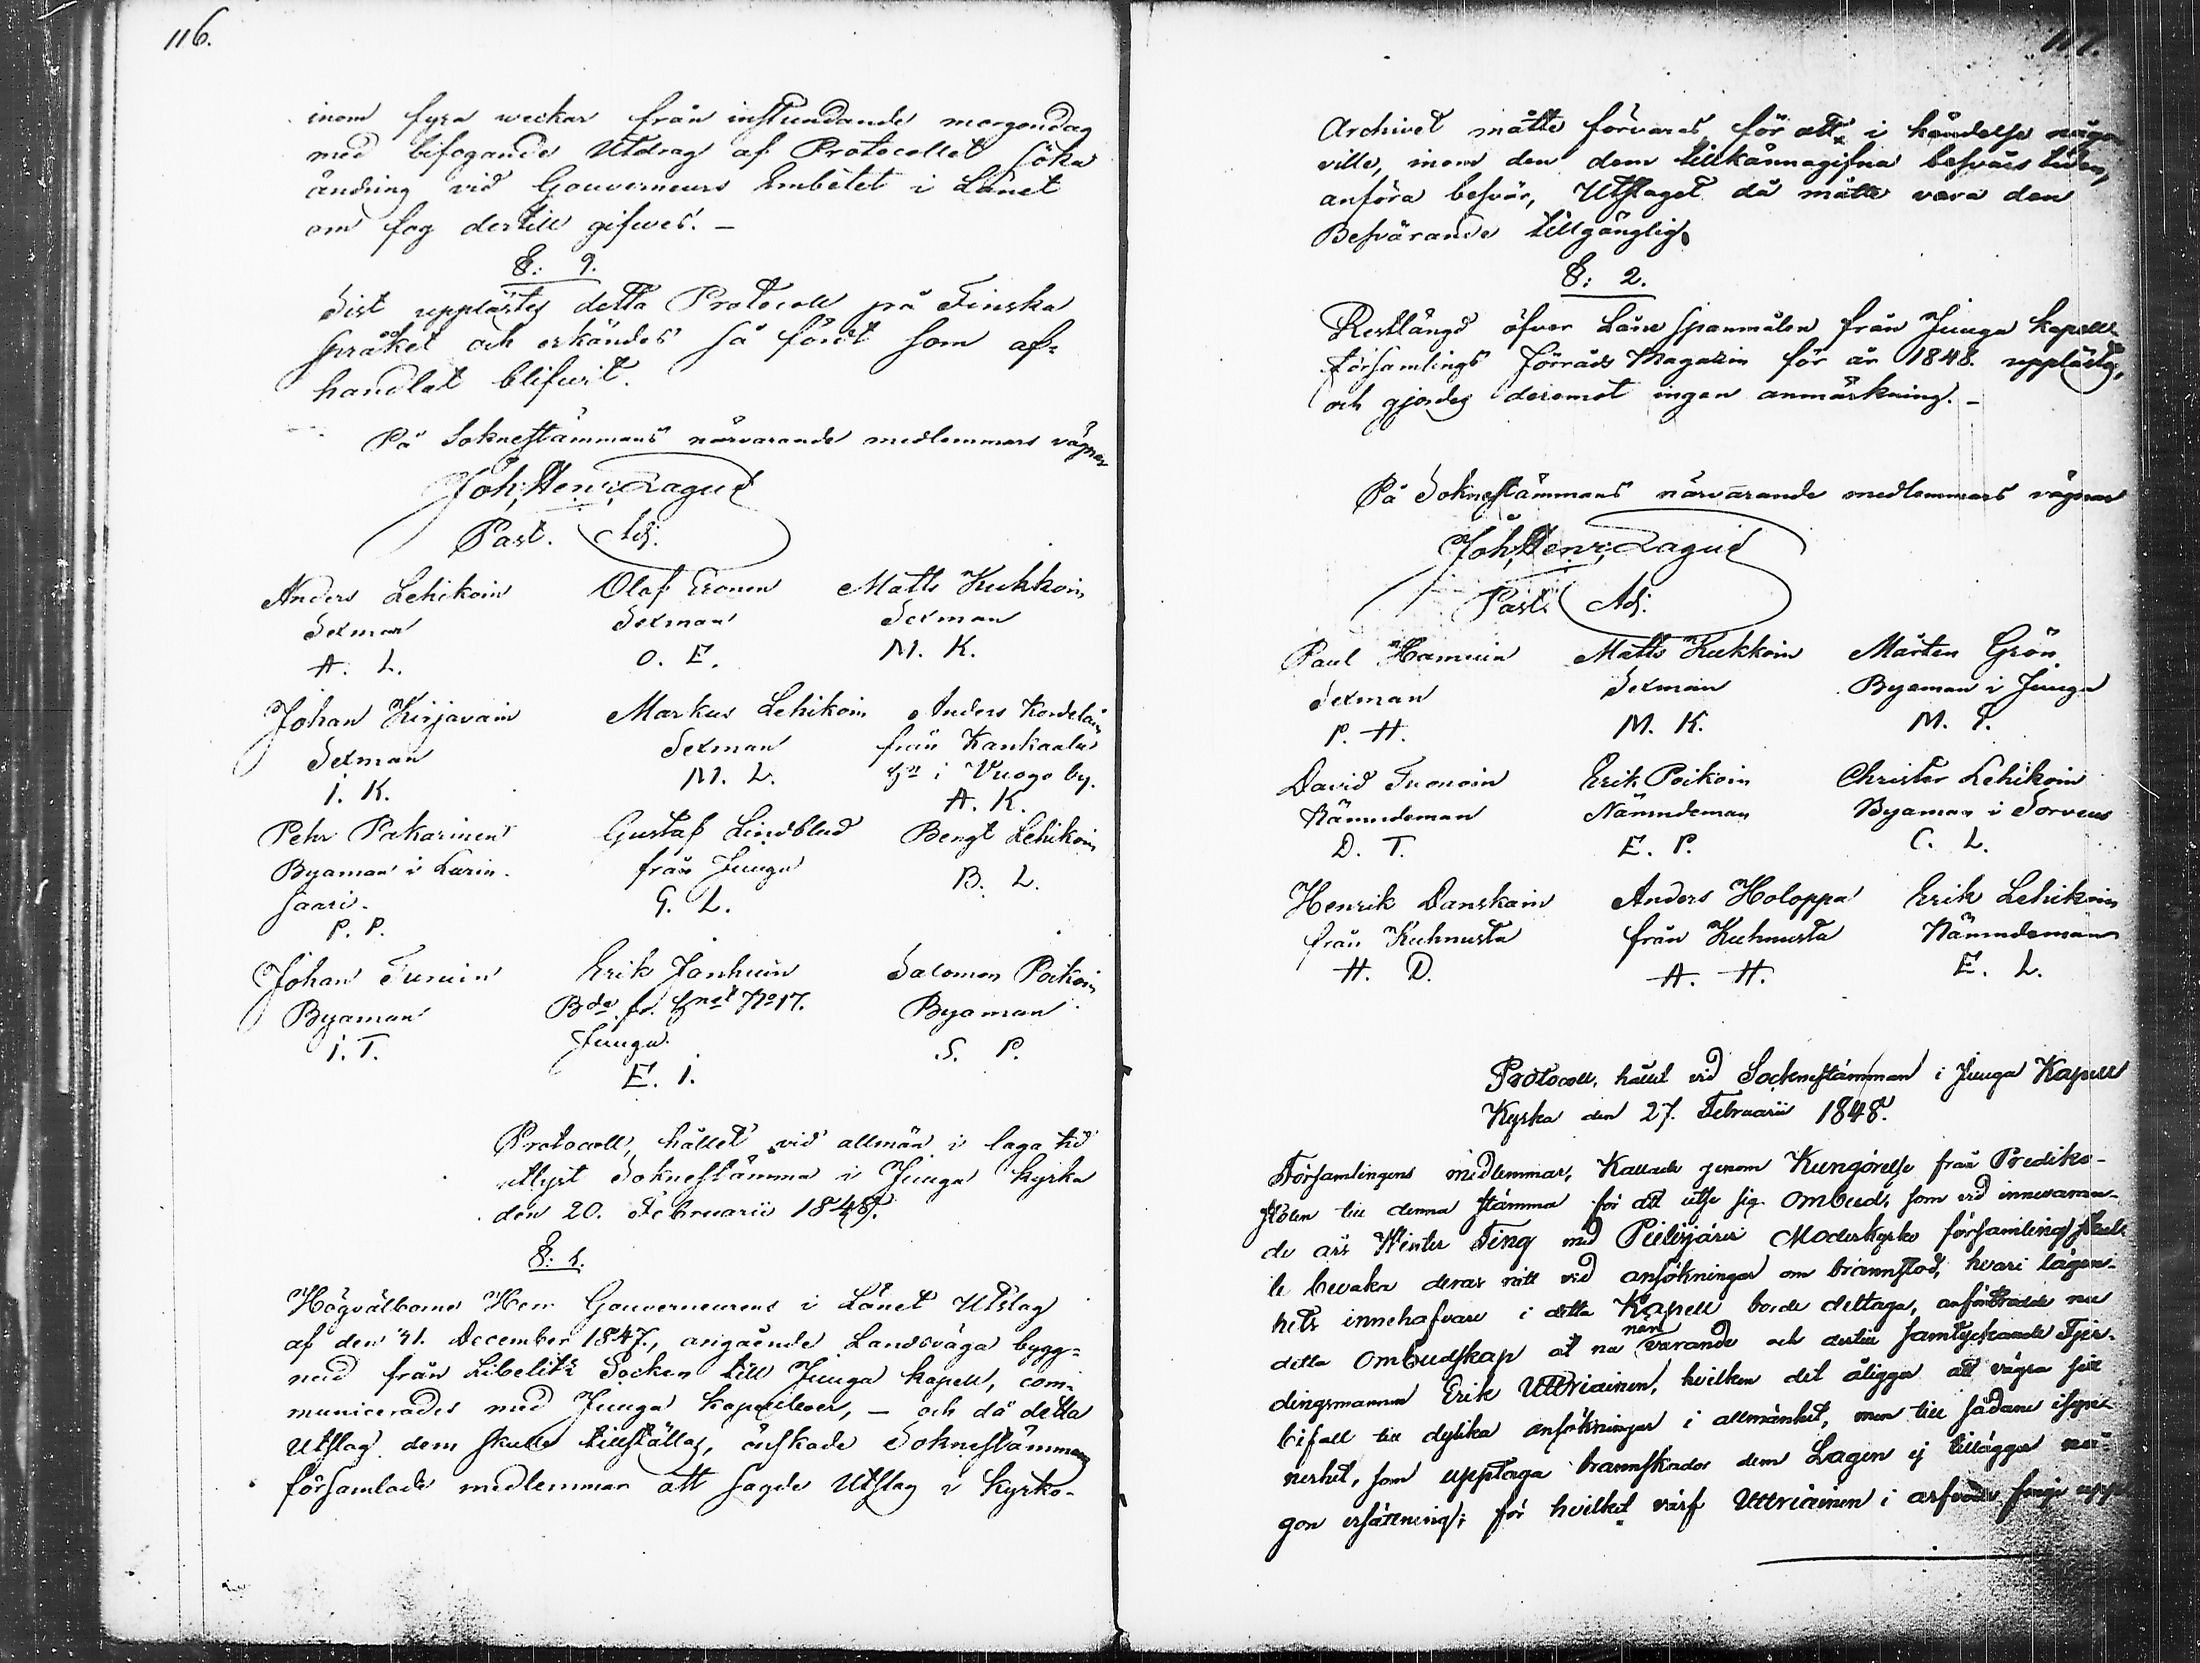 116.
inom fyra weckor från instundande morgondag
med bifogande Utdrag af Protocollet söka
ändring vid Gouverneurs Embetet i Länet
om fog dertill gifves. –
§: 9.
Sist upplästes detta Protocoll på Finska
språket och erkändes så fördt som af-
handlat blifvit.
På Soknestämmans närvarande medlemmars vägnar
Joh: Henr: Lagus
Past. Adj.
Anders Lehikoin Olof Eronen Matts Kukkoin
Sexman Sexman Sexman
A. L. O. E. M. K.
Johan Kirjavain Markus Lehikoin Anders Kordelain
Sexman Sexman från Kankaala
I. K. M. L. hn i Vuogo by.
A. K.
Pehr Pakarinen Gustaf Lindblad Bengt Lehikoin
Byaman i Larin- från Juuga B. L.
saari. G. L.
P. P.
Johan Turuin Erik Jonhuin Salomon Poikoin
Byaman Bde. fr. hnet No 17. Byaman
I. T. Juuga. S. P.
E. I.
Protocoll, hållet vid allmän i laga tid
utlyst Soknestämma i Juuga kyrka
den 20. Februarii 1848.
§: 1.
Högvälborne Herr Gouverneurens i Länet Utslag
af den 31. December 1847., angående Landsväga bygg-
nad från Libelits Socken till Juuga kapell, com-
municerades med Juuga kapellboer, – och då detta
Utslag dem skulle tillställas, önskade Sokneståmmans
församlade medlemmar att sagde Utslag i kyrko-
117.
Archivet måtte förvaras, för att i händelse någon
ville, inom den dem tillkännagifna besvärs tiden,
anföra besvär, Utslaget då måtte vara den
Besvärande tillgänglig.
§: 2.
Restlängd öfver Låne spanmålen från Juuga kapells
församlings förråds Magazin för år 1848. upplästes,
och gjordes deremot ingen anmärkning. –
På Sokneståmmans närvarande medlemmars vägnar
Joh: Henr: Lagus
Past. Adj.
Paul Hamuin Matts Kukkoin Mårten Grön
Sexman Sexman Byaman i Juuga
P. H. M. K. M. G.
David Tuonoin Erik Poikoin Christer Lehikoin
Nämndeman Nämndeman Byaman i Porvens
D. T. E. P. C. L.
Henrik Danskain Anders Holoppa Erik Lehikoin
från Kuhnusta från Kuhnusta Nämndeman
H. D. A. H. E. L.
Protocoll, hållit vid Socknestämman i Juuga Kapell
Kyrka den 27. Februarii 1848.
Församlingens medlemmar, Kallade genom Kungörelse från Prediko-
stolen till denna stämma för att utse sig Ombud, som vid innevaran-
de års Winter Ting med Pielisjärvi Moderkyrko församling skul-
le bevaka deras rätt vid ansökningar om brannstod, hvari lägen-
hets innehafvare i detta Kapell borde deltaga, anförtrodde nu
detta Ombudskap åt nu när varande och dertill samtyckande Fjer-
dingsmannen Erik Uttriainen, hvilken det åligger att vägra sitt
bifall till dylika ansökningar i allmänhet, men till sådane isyn-
nerhet, som upptaga brannskador dem Lagen ej tillägger nå-
gon ersättning; för hvilket värf Uttriainen i arfvode finge upp